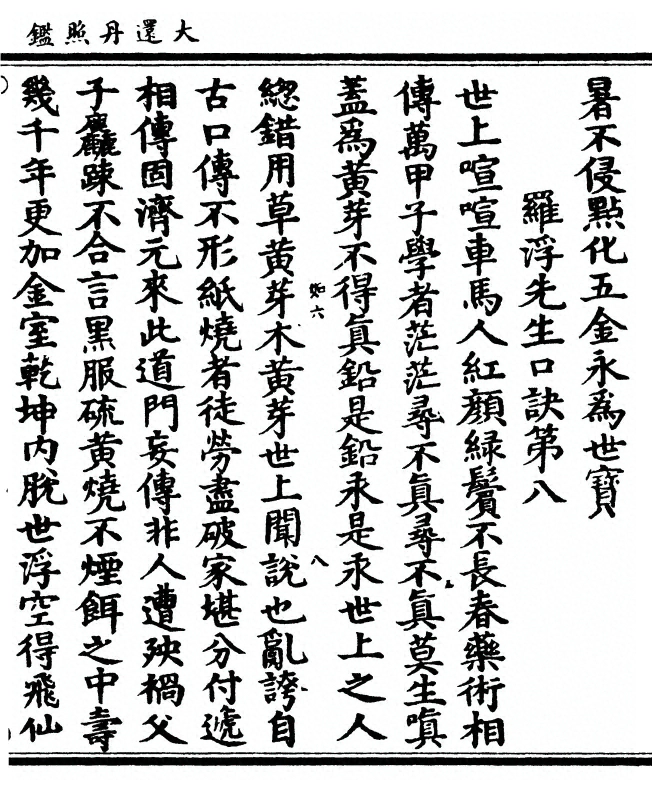 大還丹照鑑
暑不侵點化五金永爲世寶
羅浮先生口訣第八
世上喧喧車馬人紅顔緑鬢不長春藥術相
傳萬甲子學者茫茫尋不眞尋不眞莫生嗔
蓋爲黄芽不得眞鉛是鉛汞是汞世上之人
如六
八
總錯用草黄芽木黄芽世上聞說也亂誇自
古口傳不形紙燒者徒勞盡破家堪分付遞
相傳固濟元來此道門妄傳非人遭殃禍父
子麤踈不合言黑服硫黄燒不煙餌之中壽
幾千年更加金室乾坤内脫世浮空得飛仙